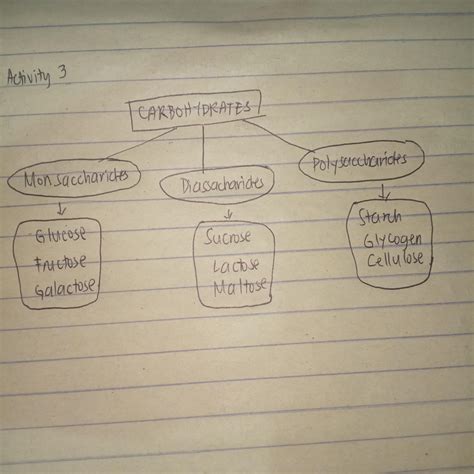 Activity 3
CARBOHYDRATES
Monsaccharides
Diassacharides
Polysaccharides
Glucose
Fructose
Galactose
Sucrose
Lactose
Maltose
Starch
Glycogen
Cellulose